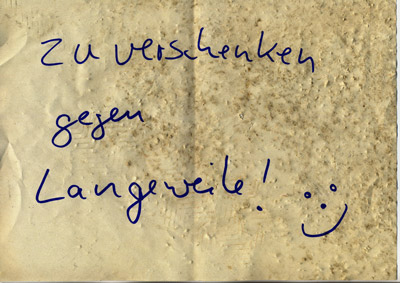 zu verschenken
gegen
Langeweile!